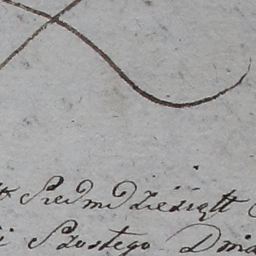 Siedmdziesiątt
Szostego Dnia